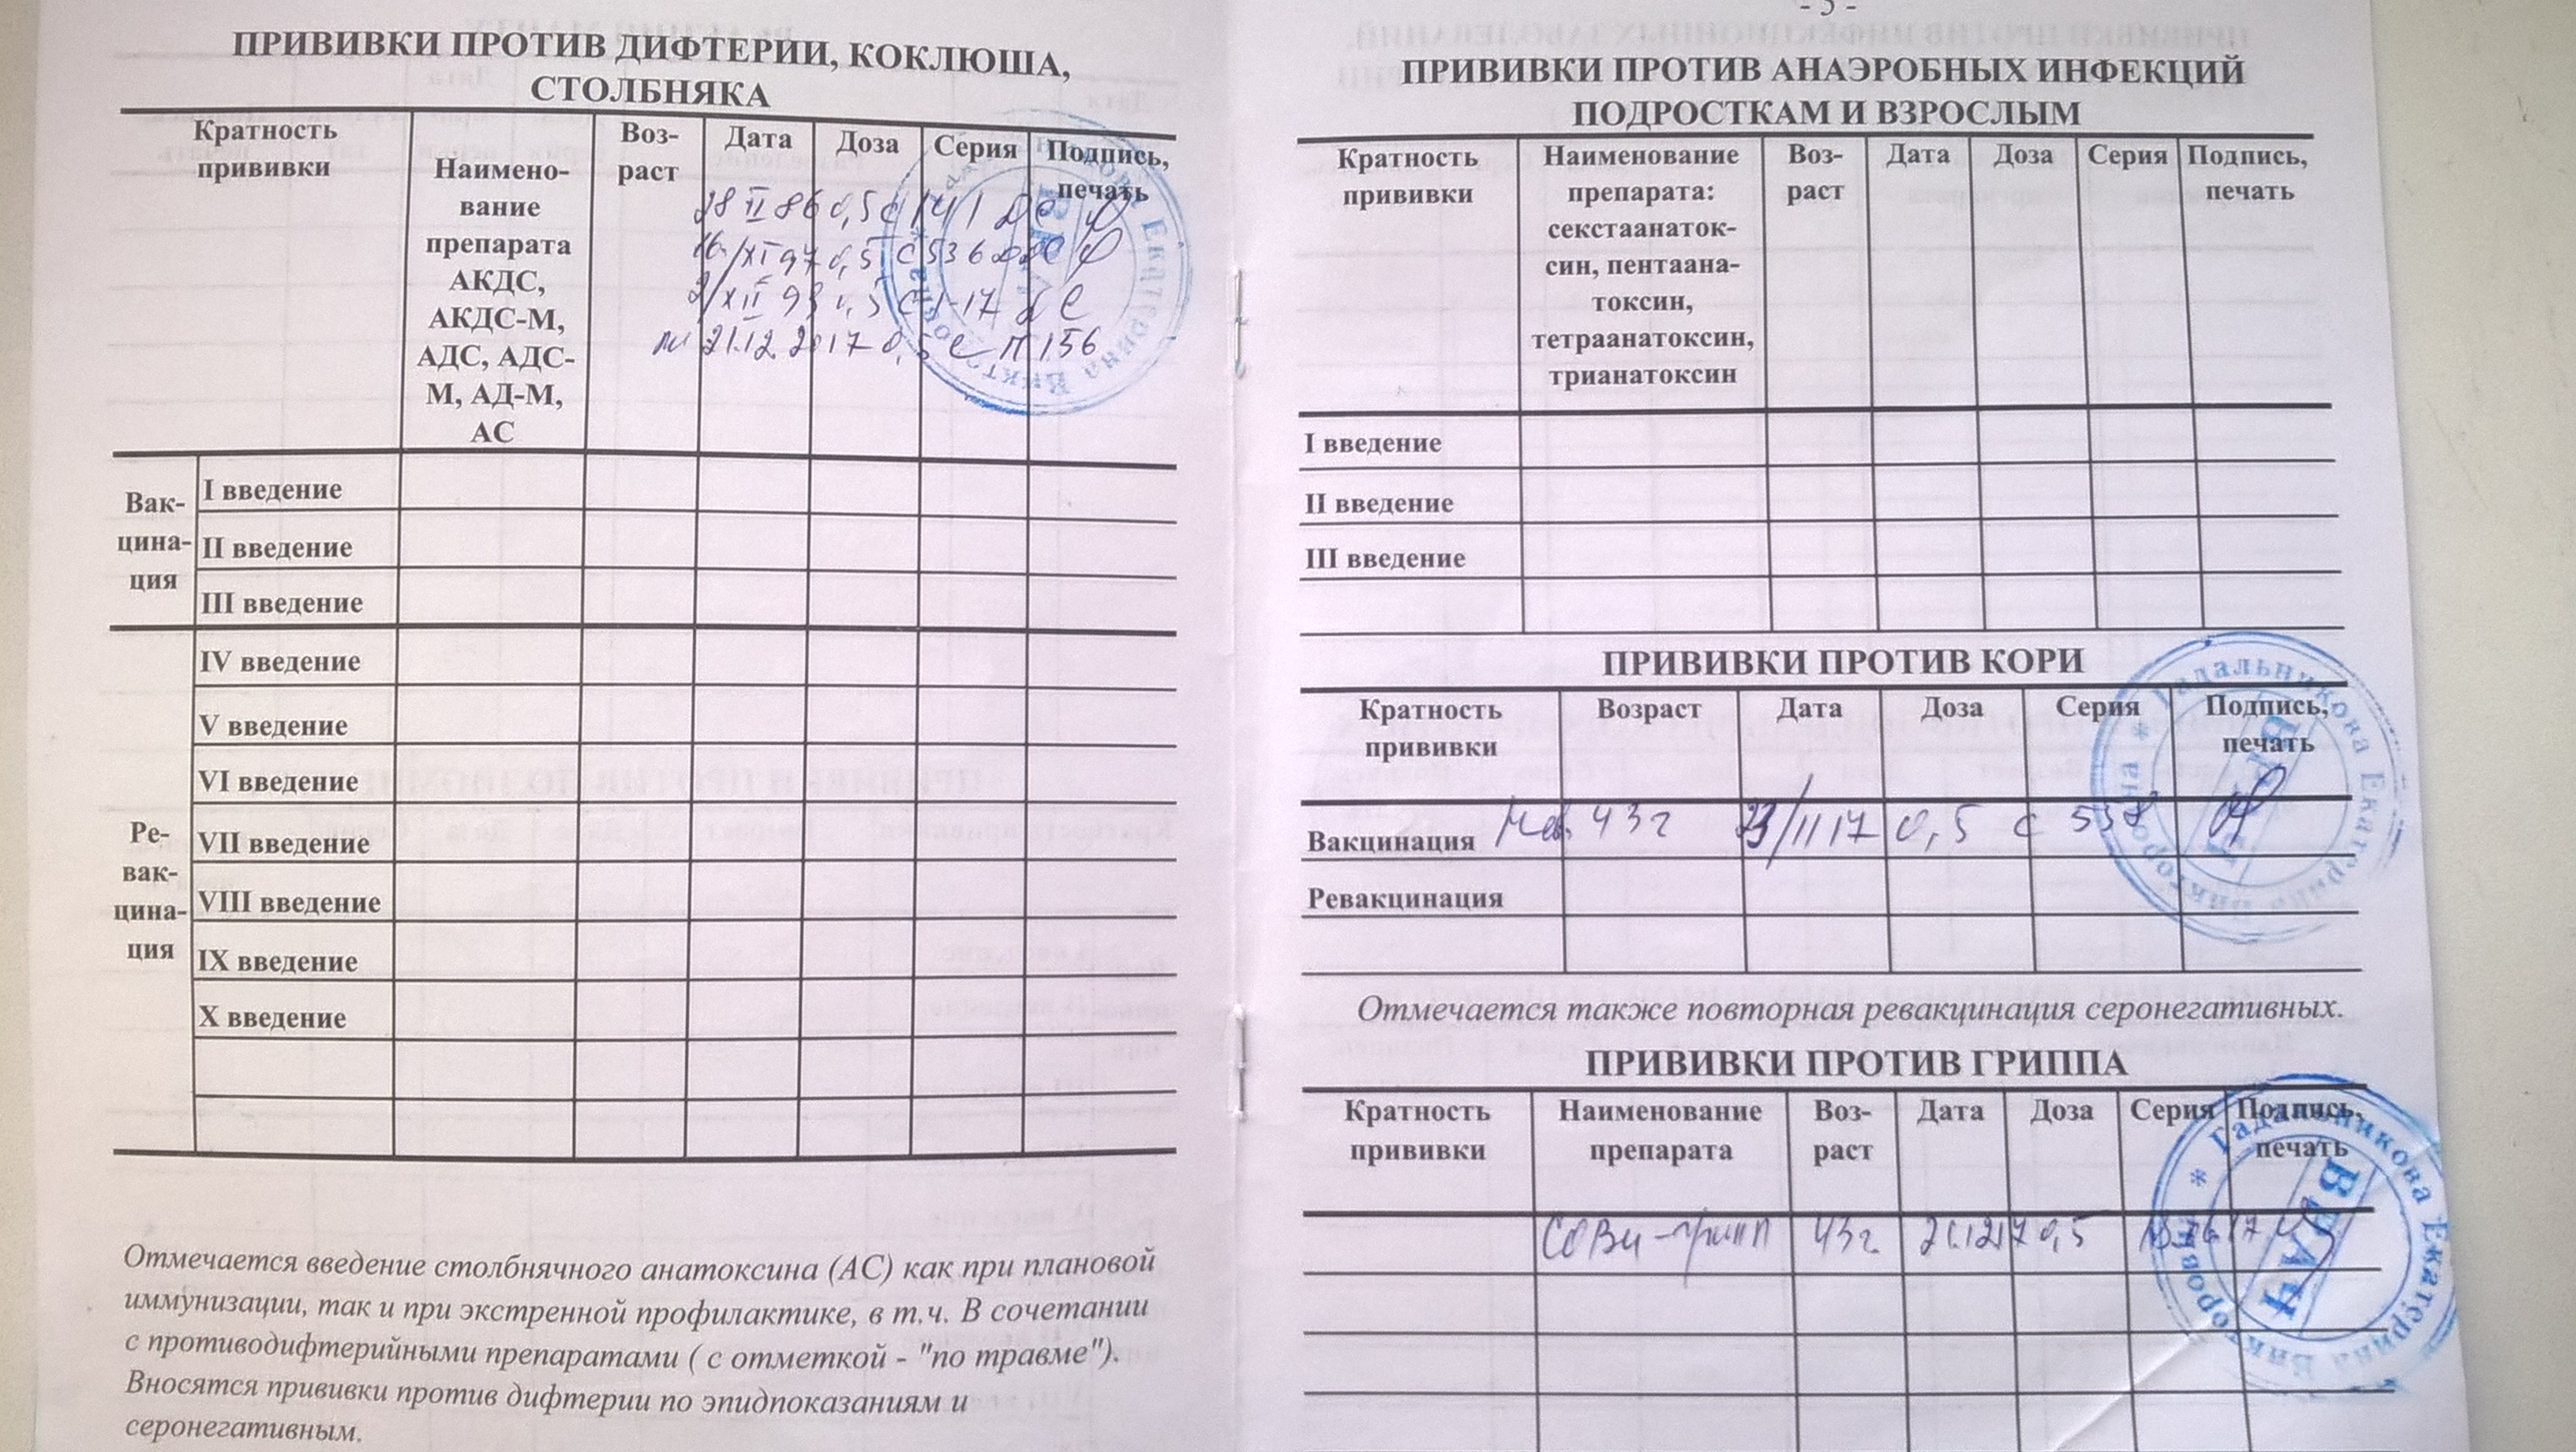 ПРИВИВКИ ПРОТИВ ДИФТЕРИИ, КОКЛЮША,
СТОЛБНЯКА
Кратность
прививки
Наимено-
вание
препарата
АКДС,
АКДС-М,
АДС, АДС-
М, АД-М,
АС
Воз-
раст
Дата
Доза
Серия
Подпись,
печать
28 II 86 0,5 с 141
16/XI 97 0,5 с 536
2/XII 0,5 с 1-17
21.12.2017 0,5 с П156
Вак-
цина-
ция
I введение
II введение
III введение
Ре-
вак-
цина-
ция
IV введение
V введение
VI введение
VII введение
VIII введение
IX введение
X введение
Отмечается введение столбнячного анатоксина (АС) как при плановой
иммунизации, так и при экстренной профилактике, в т.ч. В сочетании
с противодифтерийными препаратами ( с отметкой - "по травме").
Вносятся прививки против дифтерии по эпидпоказаниям и
серонегативным.
- 5 -
ПРИВИВКИ ПРОТИВ АНАЭРОБНЫХ ИНФЕКЦИЙ
ПОДРОСТКАМ И ВЗРОСЛЫМ
Кратность
прививки
Наименование
препарата:
секстаанаток-
син, пентаана-
токсин,
тетраанатоксин,
трианатоксин
Воз-
раст
Дата
Доза
Серия
Подпись,
печать
I введение
II введение
III введение
ПРИВИВКИ ПРОТИВ КОРИ
Кратность
прививки
Возраст
Дата
Доза
Серия
Подпись,
печать
Вакцинация 43 г /11 17 0,5 с 538
Ревакцинация
Гадальникова Екатерина Викторовна * ВРАЧ
Отмечается также повторная ревакцинация серонегативных.
ПРИВИВКИ ПРОТИВ ГРИППА
Кратность
прививки
Наименование
препарата
Воз-
раст
Дата
Доза
Серия
Подпись,
печать
СОВи-грипп 43 г. 21.12.17 0,5
Гадальникова Екатерина Викторовна * ВРАЧ